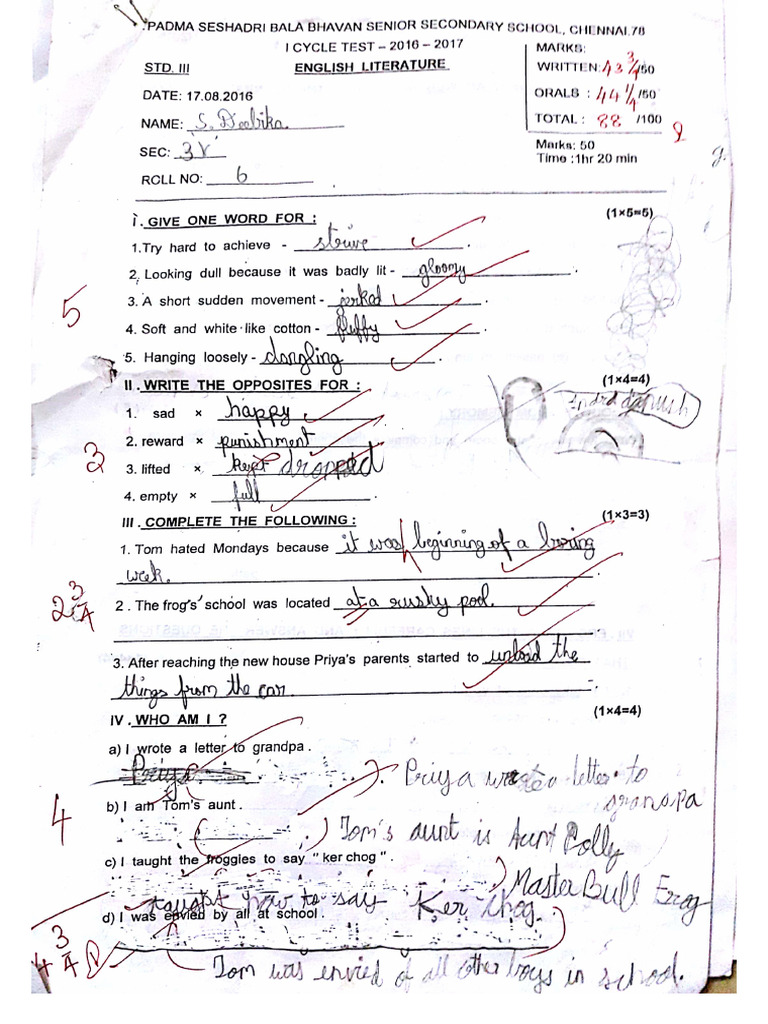 PADMA SESHADRI BALA BHAVAN SENIOR SECONDARY SCHOOL, CHENNAI.78
I CYCLE TEST – 2016 – 2017
STD. III
ENGLISH LITERATURE
DATE: 17.08.2016
NAME: S. Deebika.
SEC: 3 'V'
ROLL NO: 6
MARKS:
WRITTEN: 43 3/4 /50
ORALS : 44 1/4 /50
TOTAL : 88 /100
Marks: 50
Time :1hr 20 min
I . GIVE ONE WORD FOR : (1×5=5)
1.Try hard to achieve - strive .
2. Looking dull because it was badly lit - gloomy .
3. A short sudden movement - jerked .
5
4. Soft and white like cotton - fluffy .
5. Hanging loosely - dangling .
II . WRITE THE OPPOSITES FOR : (1×4=4)
1. sad × happy
2. reward × punishment
3
3. lifted × kept dropped
4. empty × full .
III . COMPLETE THE FOLLOWING : (1×3=3)
1. Tom hated Mondays because it was beginning of a boring
week. .
2 3/4
2 . The frog's school was located at a rusky pool. .
3. After reaching the new house Priya's parents started to unload the
things from the car. .
IV . WHO AM I ? (1×4=4)
a) I wrote a letter to grandpa .
Priya ). Priya wrote a letter to
grandpa
4
b) I am Tom's aunt .
( ) Tom's aunt is Aunt Polly
c) I taught the froggies to say " ker chog " .
) Master Bull Frog
taught how to say Ker chog.
d) I was envied by all at school .
4 3/4
Tom was envied of all other boys in school.